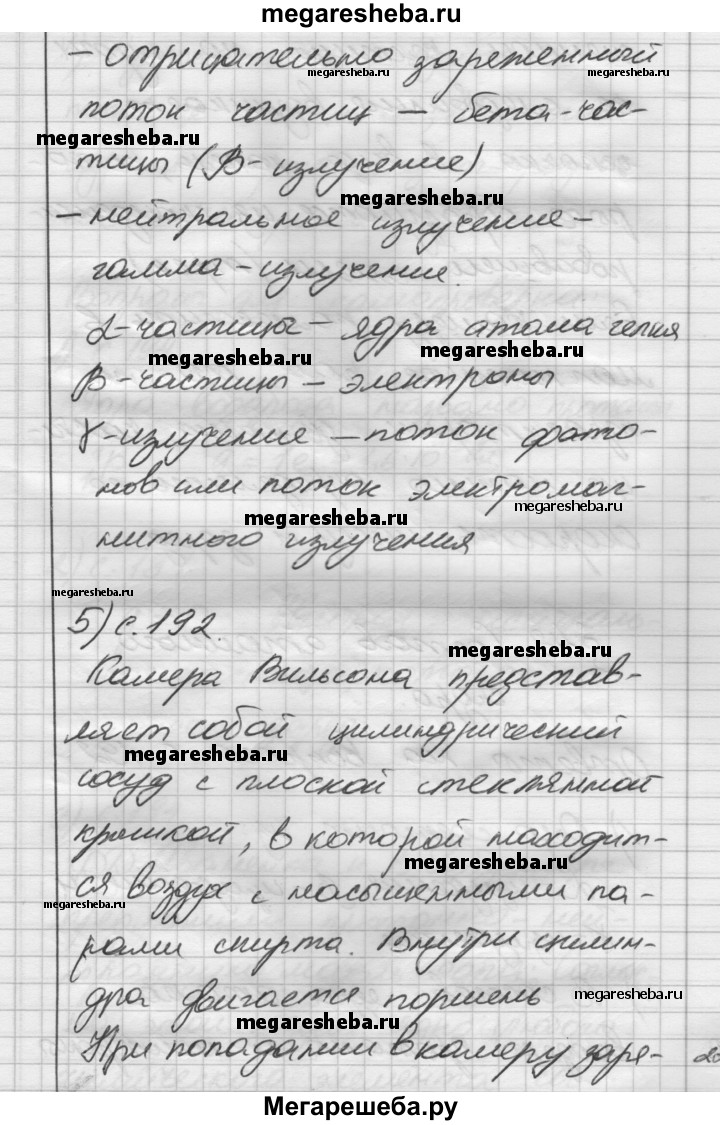 megaresheba.ru
– отрицательно заряженный
megaresheba.ru megaresheba.ru
поток частиц – бета-час-
megaresheba.ru
тицы (β-излучение)
megaresheba.ru
– нейтральное излучение –
гамма-излучение.
α-частицы – ядра атома гелия
megaresheba.ru megaresheba.ru
β-частицы – электроны
γ-излучение – поток фото-
нов или поток электромаг-
megaresheba.ru megaresheba.ru
нитного излучения
megaresheba.ru
5) с. 192.
megaresheba.ru
Камера Вильсона представ-
ляет собой цилиндрический
megaresheba.ru
сосуд с плоской стеклянной
крышкой, в которой находит-
megaresheba.ru
ся воздух с насыщенными па-
megaresheba.ru
рами спирта. Внутри цилин-
дра двигается поршень
megaresheba.ru
megaresheba.ru
При попадании в камеру заря-
Мегарешеба.ру